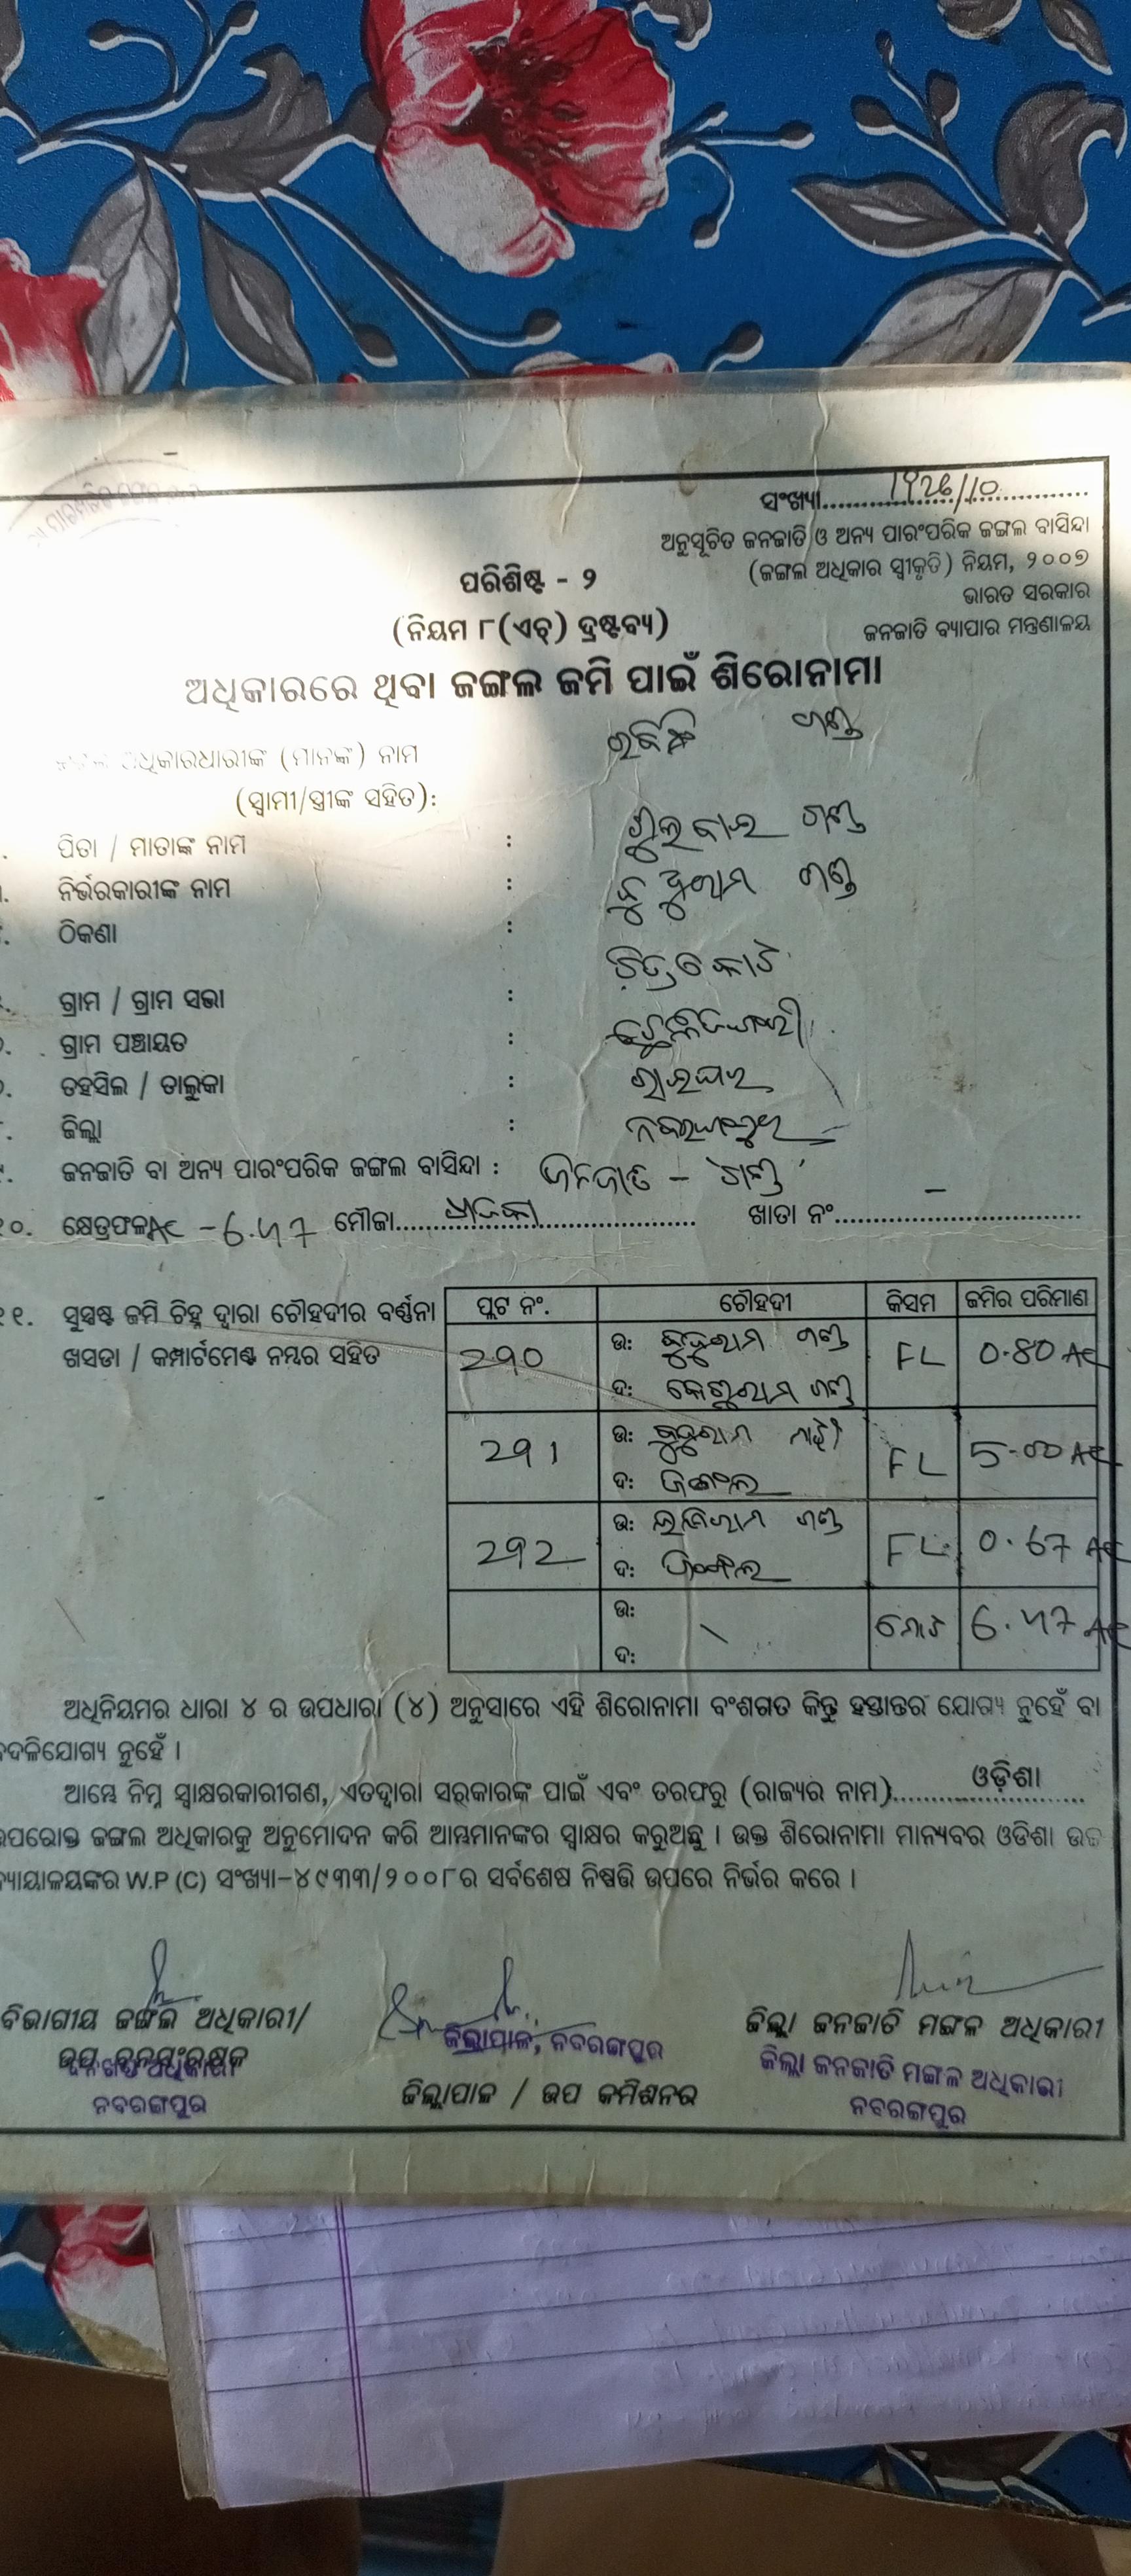 ସଂଖ୍ୟା....................
ଅନୁସୂଚିତ ଜନଜାତି ଓ ଅନ୍ୟ ପାରଂପରିକ ଜଙ୍ଗଲ ବାସିନ୍ଦା
(ଜଙ୍ଗଲ ଅଧିକାର ସ୍ୱୀକୃତି) ନିୟମ, ୨୦୦୭
ଭାରତ ସରକାର
ଜନଜାତି ବ୍ୟାପାର ମନ୍ତ୍ରଣାଳୟ
ପରିଶିଷ୍ଟ - ୨
(ନିୟମ ୮(ଏଚ୍) ଦ୍ରଷ୍ଟବ୍ୟ)
ଅଧିକାରରେ ଥିବା ଜଙ୍ଗଲ ଜମି ପାଇଁ ଶିରୋନାମା
ଅଧିକାରଧାରୀଙ୍କ (ମାନଙ୍କ) ନାମ ଗଣ୍ଡ
(ସ୍ୱାମୀ/ସ୍ତ୍ରୀଙ୍କ ସହିତ):
ପିତା / ମାତାଙ୍କ ନାମ : ଗଣ୍ଡ
ନିର୍ଭରକାରୀଙ୍କ ନାମ : ଗଣ୍ଡ
ଠିକଣା :
ଗ୍ରାମ / ଗ୍ରାମ ସଭା : ଚିତ୍ରକୋଟ
ଗ୍ରାମ ପଞ୍ଚାୟତ :
ତହସିଲ / ତାଲୁକା : ରାଇଘର
ଜିଲ୍ଲା : ନବରଙ୍ଗପୁର
ଜନଜାତି ବା ଅନ୍ୟ ପାରଂପରିକ ଜଙ୍ଗଲ ବାସିନ୍ଦା : ଜନଜାତି - ଗଣ୍ଡ
୧୦. କ୍ଷେତ୍ରଫଳ AC - 6.47 ମୌଜା.................... ଖାତା ନଂ.................... -
୧୧. ସୁସ୍ପଷ୍ଟ ଜମି ଚିହ୍ନ ଦ୍ୱାରା ଚୌହଦୀର ବର୍ଣ୍ଣନା
ଖସଡା / କମ୍ପାର୍ଟମେଣ୍ଟ ନମ୍ବର ସହିତ
ପ୍ଲଟ ନଂ. ଚୌହଦୀ କିସମ ଜମିର ପରିମାଣ
290 ଉ: ଗଣ୍ଡ FL 0.80 AC
ଦ: ଗଣ୍ଡ
291 ଉ: FL 5.00 AC
ଦ: ଜଙ୍ଗଲ
292 ଉ: ଗଣ୍ଡ FL 0.67 AC
ଦ: ଜଙ୍ଗଲ
ଉ: ମୋଟ 6.47 AC
ଦ:
ଅଧିନିୟମର ଧାରା ୪ ର ଉପଧାରା (୪) ଅନୁସାରେ ଏହି ଶିରୋନାମା ବଂଶଗତ କିନ୍ତୁ ହସ୍ତାନ୍ତର ଯୋଗ୍ୟ ନୁହେଁ ବା
ବଦଳିଯୋଗ୍ୟ ନୁହେଁ ।
ଆମ୍ଭେ ନିମ୍ନ ସ୍ୱାକ୍ଷରକାରୀଗଣ, ଏତଦ୍ଦ୍ୱାରା ସରକାରଙ୍କ ପାଇଁ ଏବଂ ତରଫରୁ (ରାଜ୍ୟର ନାମ)....................ଓଡ଼ିଶା
ଉପରୋକ୍ତ ଜଙ୍ଗଲ ଅଧିକାରକୁ ଅନୁମୋଦନ କରି ଆମ୍ଭମାନଙ୍କର ସ୍ୱାକ୍ଷର କରୁଅଛୁ । ଉକ୍ତ ଶିରୋନାମା ମାନ୍ୟବର ଓଡିଶା ଉଚ୍ଚ
ନ୍ୟାୟାଳୟଙ୍କର W.P (C) ସଂଖ୍ୟା-୪୯୩୩/୨୦୦୮ର ସର୍ବଶେଷ ନିଷ୍ପତ୍ତି ଉପରେ ନିର୍ଭର କରେ ।
ବିଭାଗୀୟ ଜଙ୍ଗଲ ଅଧିକାରୀ/
ଉପ ବନସଂରକ୍ଷକ
ନବରଙ୍ଗପୁର
ଜିଲ୍ଲାପାଳ, ନବରଙ୍ଗପୁର
ଜିଲ୍ଲାପାଳ / ଉପ କମିଶନର
ଜିଲ୍ଲା ଜନଜାତି ମଙ୍ଗଳ ଅଧିକାରୀ
ଜିଲ୍ଲା ଜନଜାତି ମଙ୍ଗଳ ଅଧିକାରୀ
ନବରଙ୍ଗପୁର